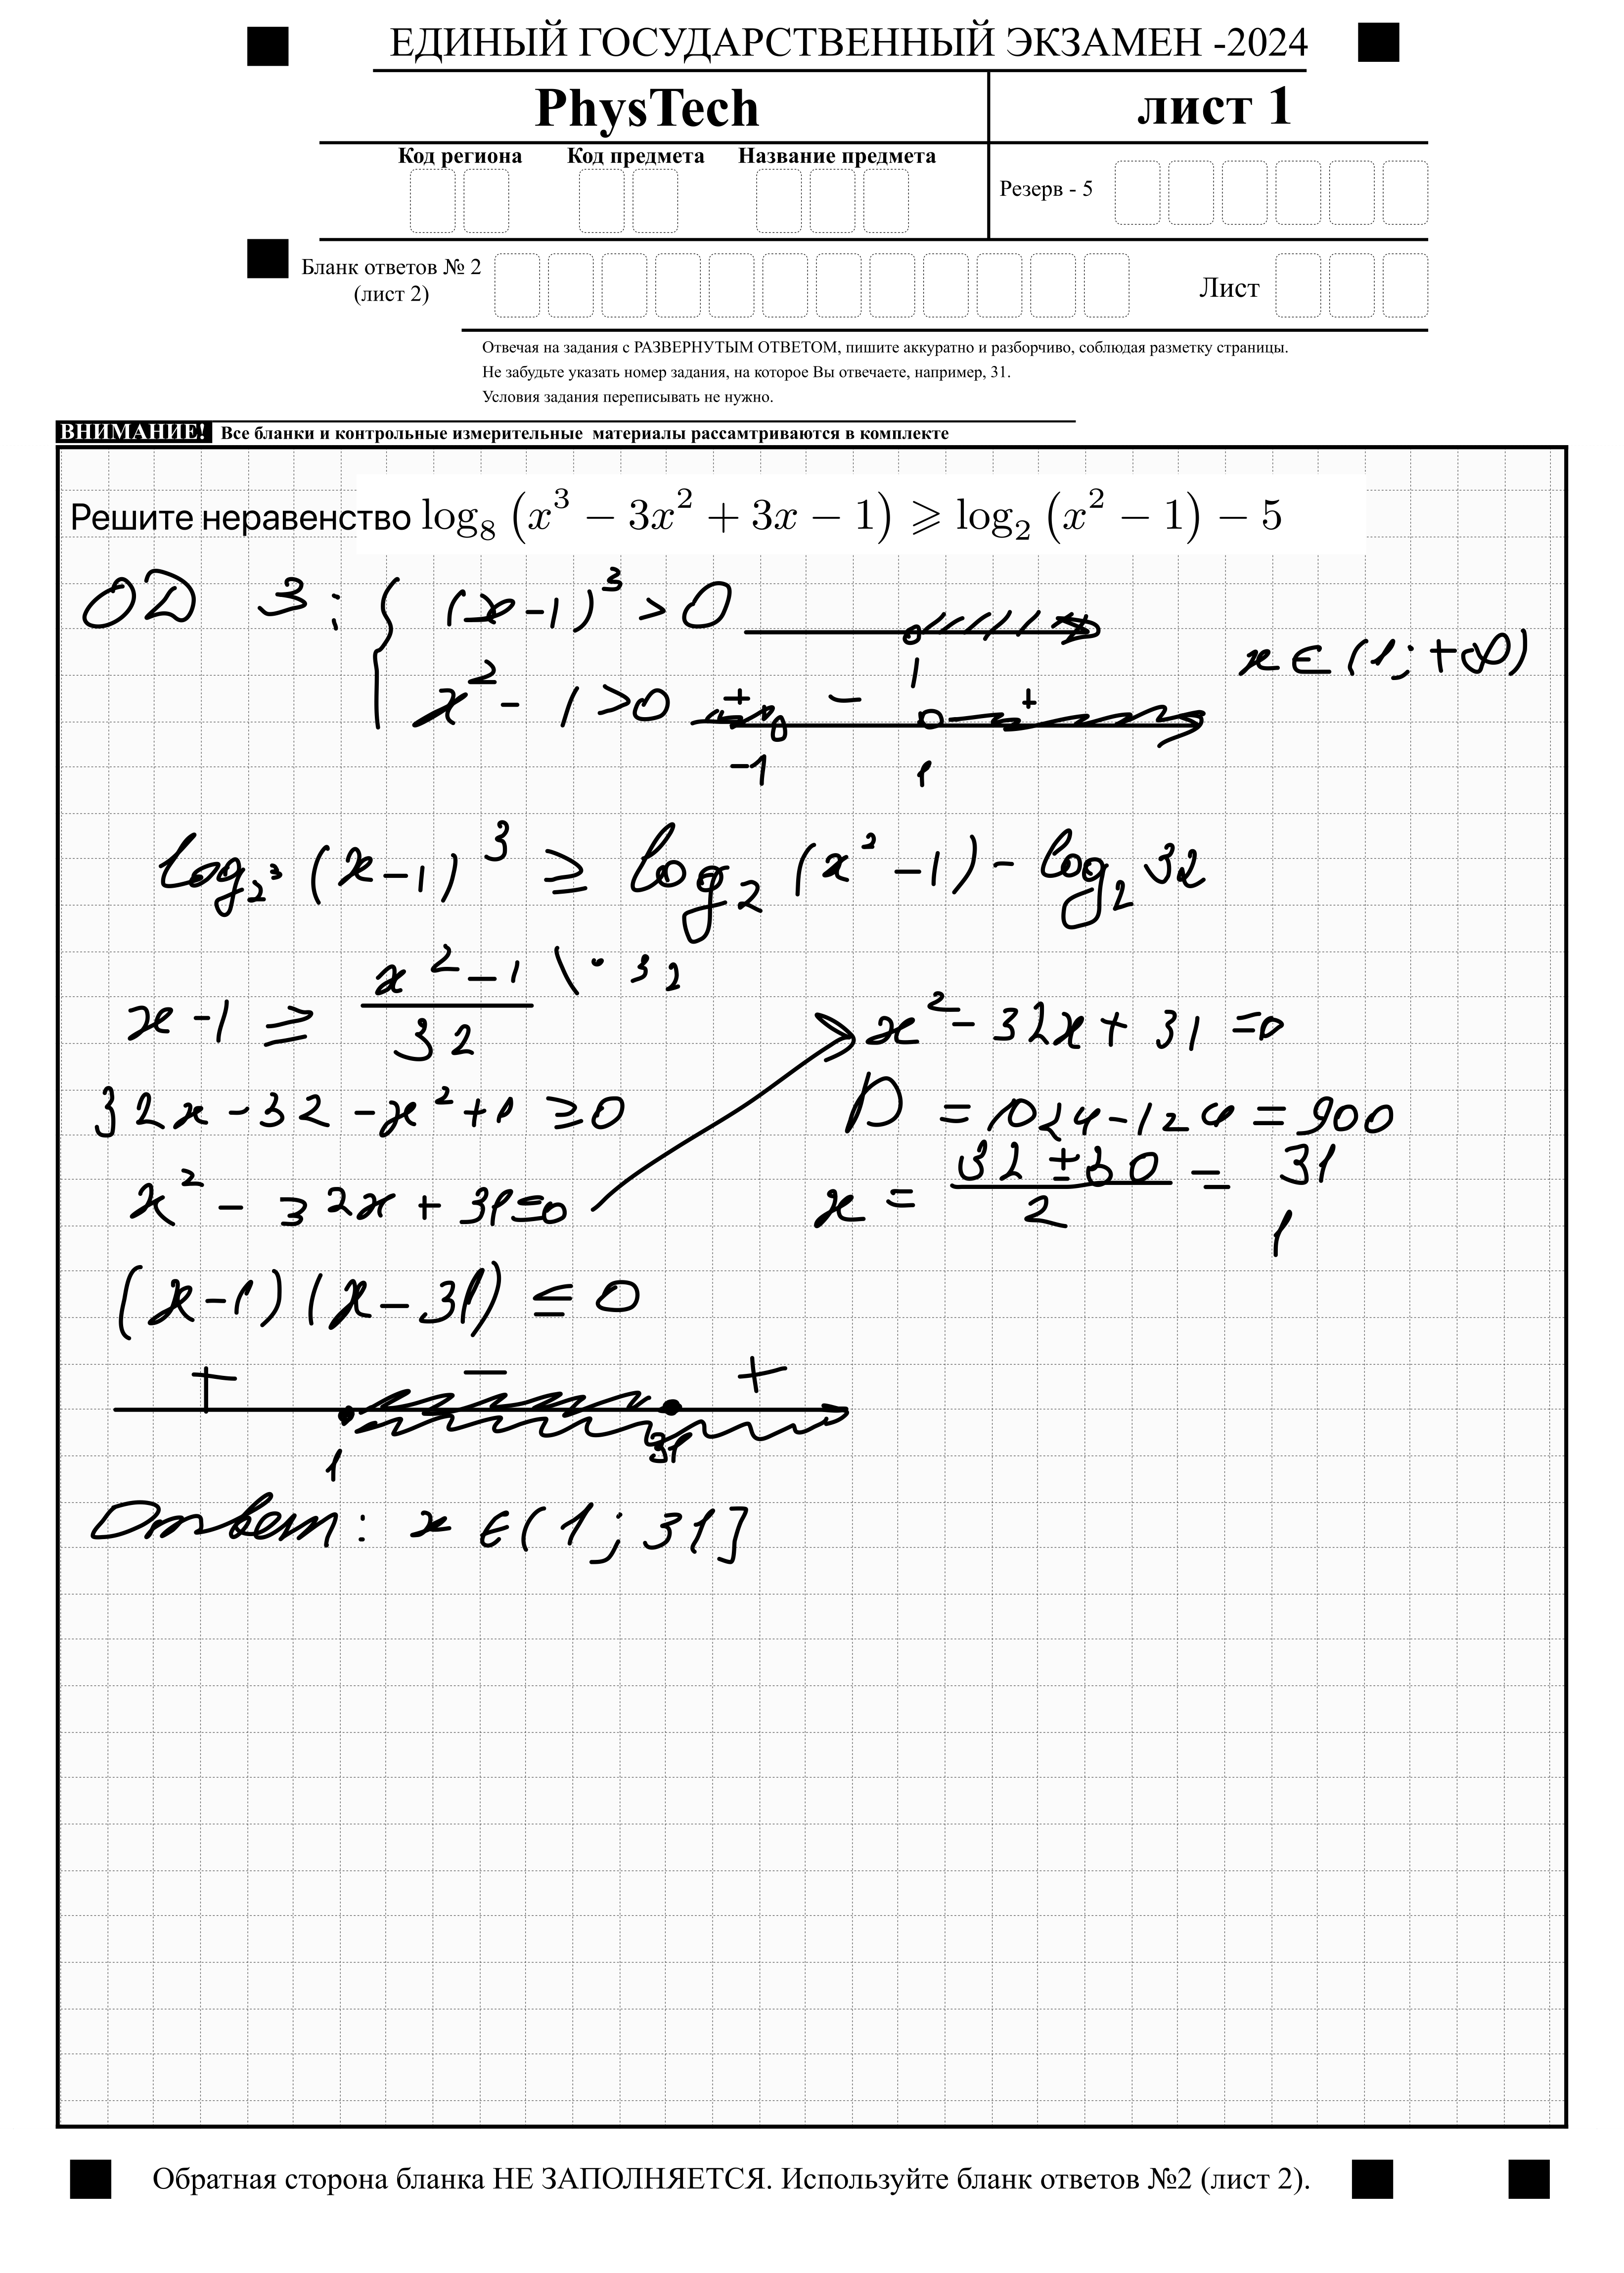 ЕДИНЫЙ ГОСУДАРСТВЕННЫЙ ЭКЗАМЕН -2024
PhysTech
лист 1
Код региона Код предмета Название предмета
Резерв - 5
Бланк ответов № 2
(лист 2)
Лист
Отвечая на задания с РАЗВЕРНУТЫМ ОТВЕТОМ, пишите аккуратно и разборчиво, соблюдая разметку страницы.
Не забудьте указать номер задания, на которое Вы отвечаете, например, 31.
Условия задания переписывать не нужно.
ВНИМАНИЕ! Все бланки и контрольные измерительные материалы рассамтриваются в комплекте
Решите неравенство log₈ (x³ − 3x² + 3x − 1) ⩾ log₂ (x² − 1) − 5
ОДЗ: { (x-1)³ > 0
1
x² - 1 > 0
+ - +
-1 1
x ∈ (1; +∞)
log₂³ (x-1)³ ≥ log₂ (x² -1) - log₂ 32
x-1 ≥ (x² -1)/32 \ · 32
32x - 32 - x² + 1 ≥ 0
x² - 32x + 31 ≤ 0
x² - 32x + 31 = 0
D = 1024 - 124 = 900
x = (32 ± 30)/2 = 31
1
(x-1)(x-31) ≤ 0
+ - +
1 31
Ответ: x ∈ (1; 31]
Обратная сторона бланка НЕ ЗАПОЛНЯЕТСЯ. Используйте бланк ответов №2 (лист 2).